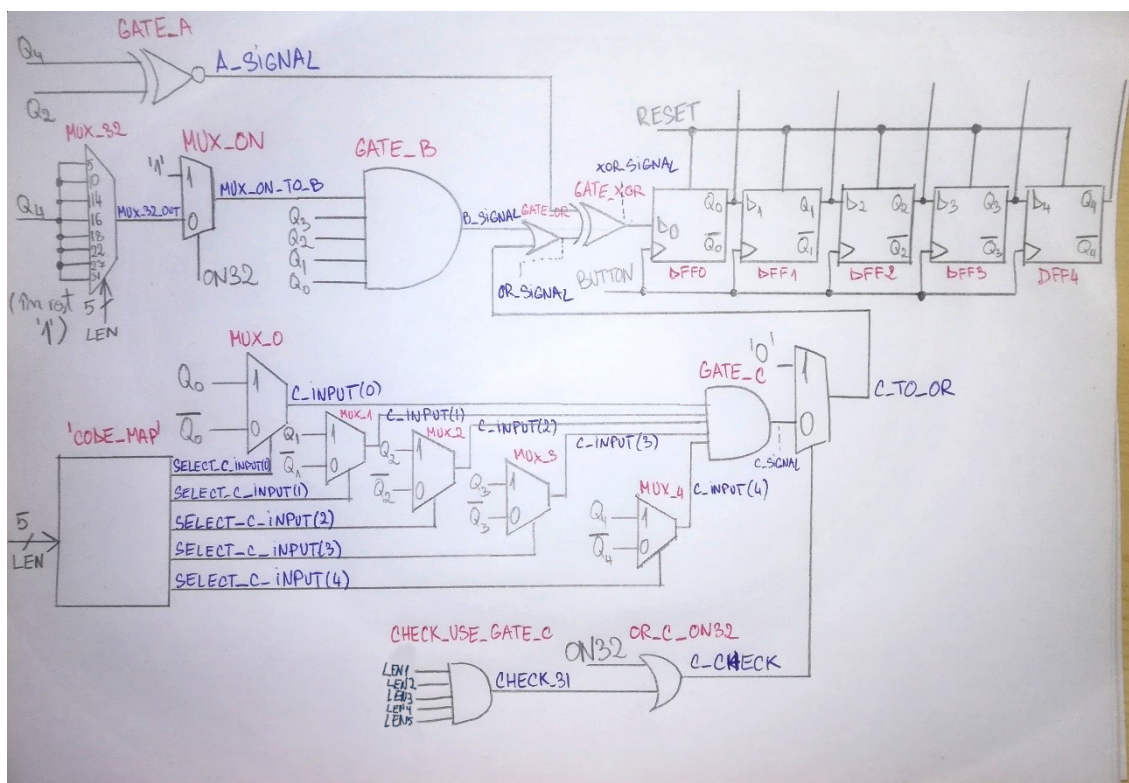 GATE_A
Q4
Q2
A_SIGNAL
MUX_32
Q4
5
10
14
16
18
22
MUX_32_OUT
(în rest '1')
5
LEN
MUX_ON
'1'
1
0
ON32
MUX_ON_TO_B
GATE_B
Q3
Q2
Q1
Q0
B_SIGNAL
GATE_OR
OR_SIGNAL
XOR_SIGNAL
GATE_XOR
RESET
BUTTON
D0
Q0
Q0
DFF0
D1
Q1
Q1
DFF1
D2
Q2
Q2
DFF2
D3
Q3
Q3
DFF3
D4
Q4
Q4
DFF4
MUX_0
Q0
Q0
1
0
C_INPUT(0)
MUX_1
Q1
Q1
1
0
C_INPUT(1)
MUX_2
Q2
Q2
1
0
C_INPUT(2)
MUX_3
Q3
Q3
1
0
C_INPUT(3)
MUX_4
Q4
Q4
1
0
C_INPUT(4)
GATE_C
C_SIGNAL
'0'
1
0
C_TO_OR
'CODE_MAP'
5
LEN
SELECT_C_INPUT(0)
SELECT_C_INPUT(1)
SELECT_C_INPUT(2)
SELECT_C_INPUT(3)
SELECT_C_INPUT(4)
CHECK_USE_GATE_C
LEN1
LEN2
LEN3
LEN4
LEN5
CHECK_31
ON32
OR_C_ON32
C_CHECK